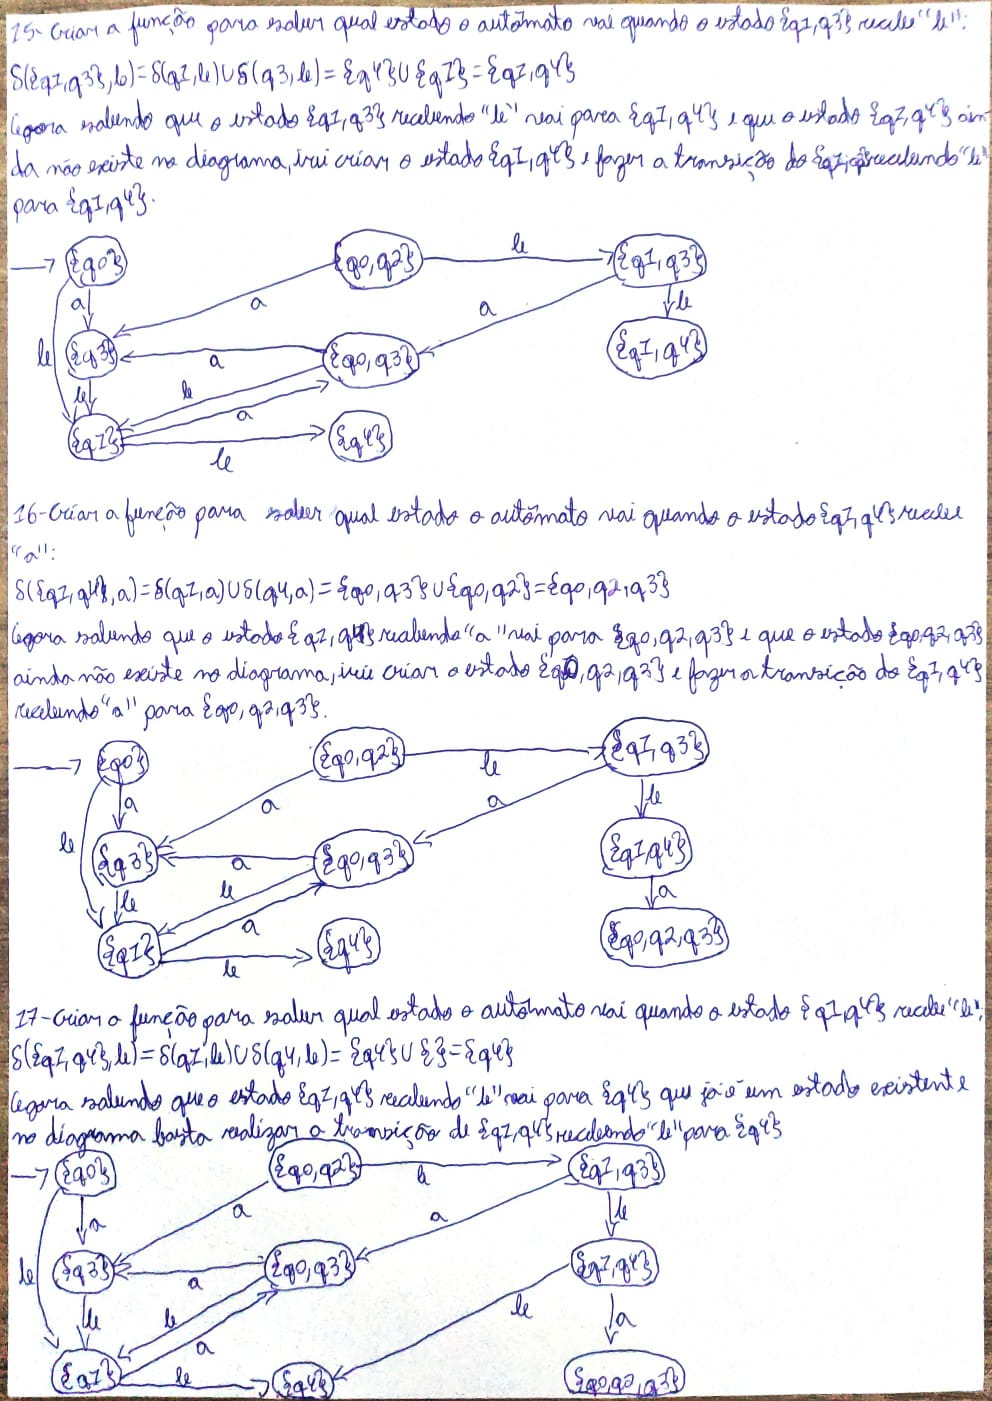 15- Criar a função para saber qual estado o autômato vai quando o estado {q1,q3} recebe "b":
δ({q1,q3},b)=δ(q1,b)∪δ(q3,b)={q4}∪{q1}={q1,q4}
Agora sabendo que o estado {q1,q3} recebendo "b" vai para {q1,q4} e que o estado {q1,q4} ain-
da não existe no diagrama, irei criar o estado {q1,q4} e fazer a transição do {q1,q3} recebendo "b"
para {q1,q4}.
{q0} {q0,q2} b {q1,q3}
a a a b
b {q3} a {q0,q3} {q1,q4}
b b a
{q1} b {q4}
16-Criar a função para saber qual estado o autômato vai quando o estado {q1,q4} recebe
"a":
δ({q1,q4},a)=δ(q1,a)∪δ(q4,a)={q0,q3}∪{q0,q2}={q0,q2,q3}
Agora sabendo que o estado {q1,q4} recebendo "a" vai para {q0,q2,q3} e que o estado {q0,q2,q3}
ainda não existe no diagrama, irei criar o estado {q0,q2,q3} e fazer a transição do {q1,q4}
recebendo "a" para {q0,q2,q3}.
{q0} {q0,q2} b {q1,q3}
a a a b
b {q3} a {q0,q3} {q1,q4}
b b a a
{q1} b {q4} {q0,q2,q3}
17-Criar a função para saber qual estado o autômato vai quando o estado {q1,q4} recebe "b";
δ({q1,q4},b)=δ(q1,b)∪δ(q4,b)={q4}∪{}={q4}
Agora sabendo que o estado {q1,q4} recebendo "b" vai para {q4} que já é um estado existente
no diagrama basta realizar a transição de {q1,q4} recebendo "b" para {q4}
{q0} {q0,q2} b {q1,q3}
a a a b
b {q3} a {q0,q3} {q1,q4}
b b a b a
{q1} b {q4} {q0,q2,q3}